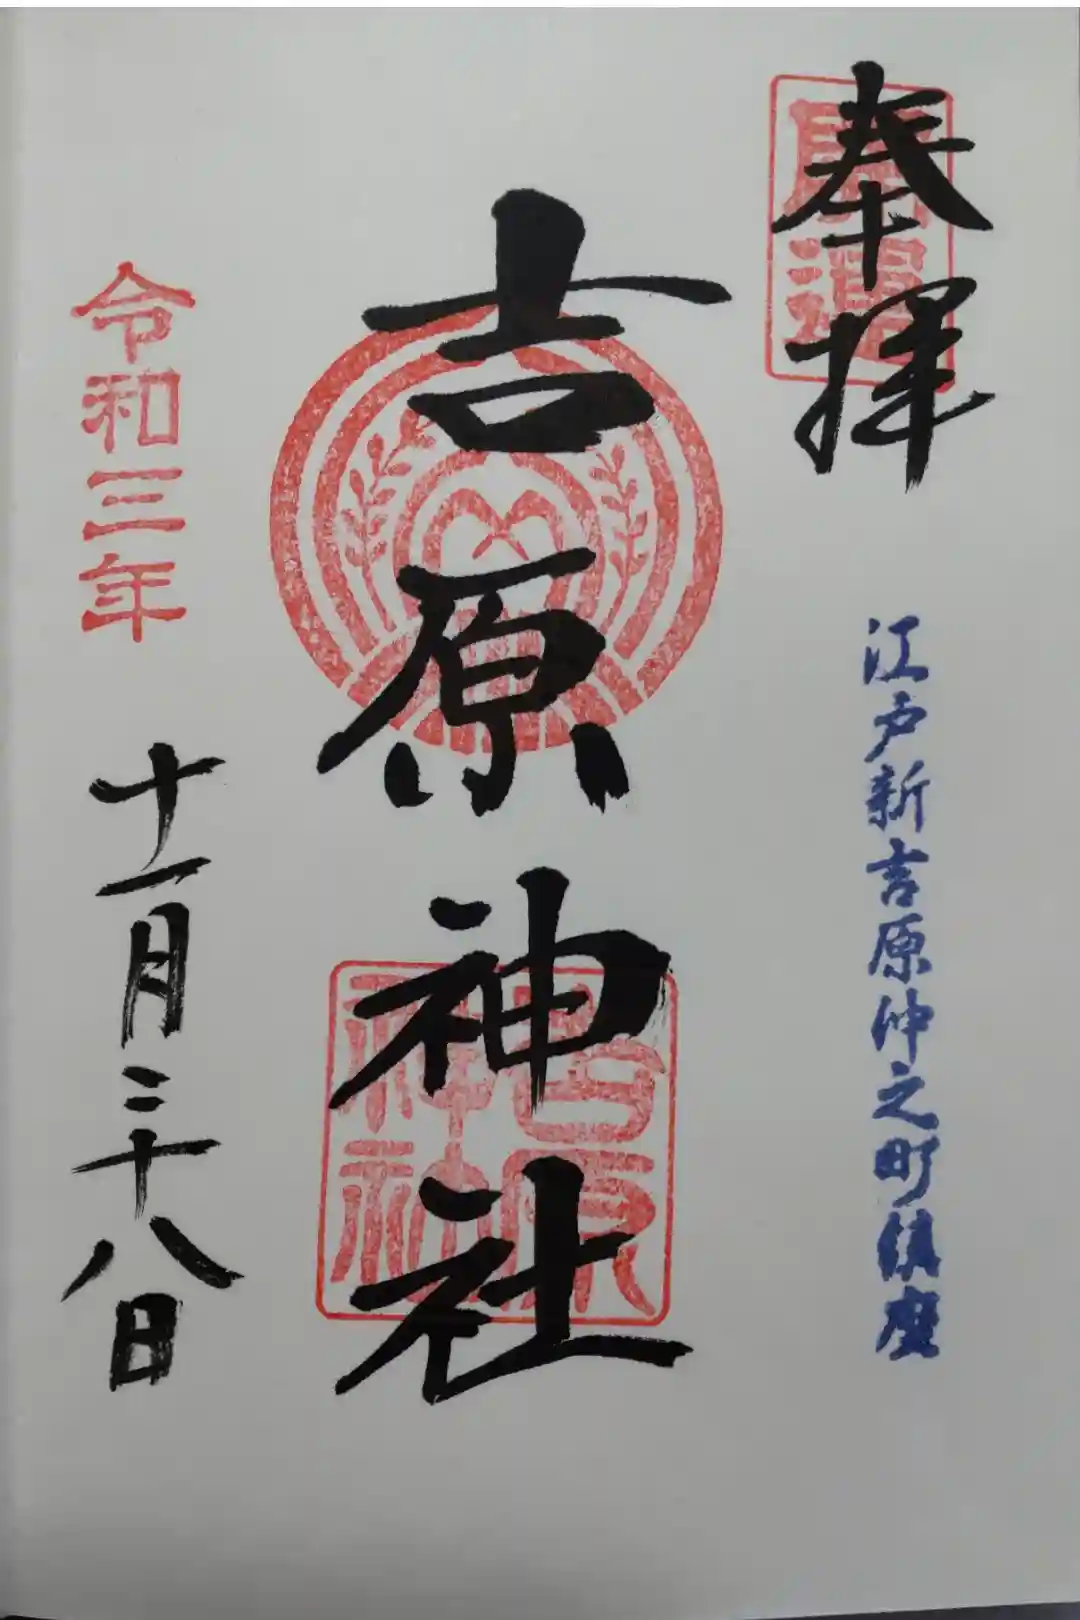 奉拝
開運
江戸新吉原仲之町鎮座
吉原神社
吉原
神社
令和三年
十一月二十八日